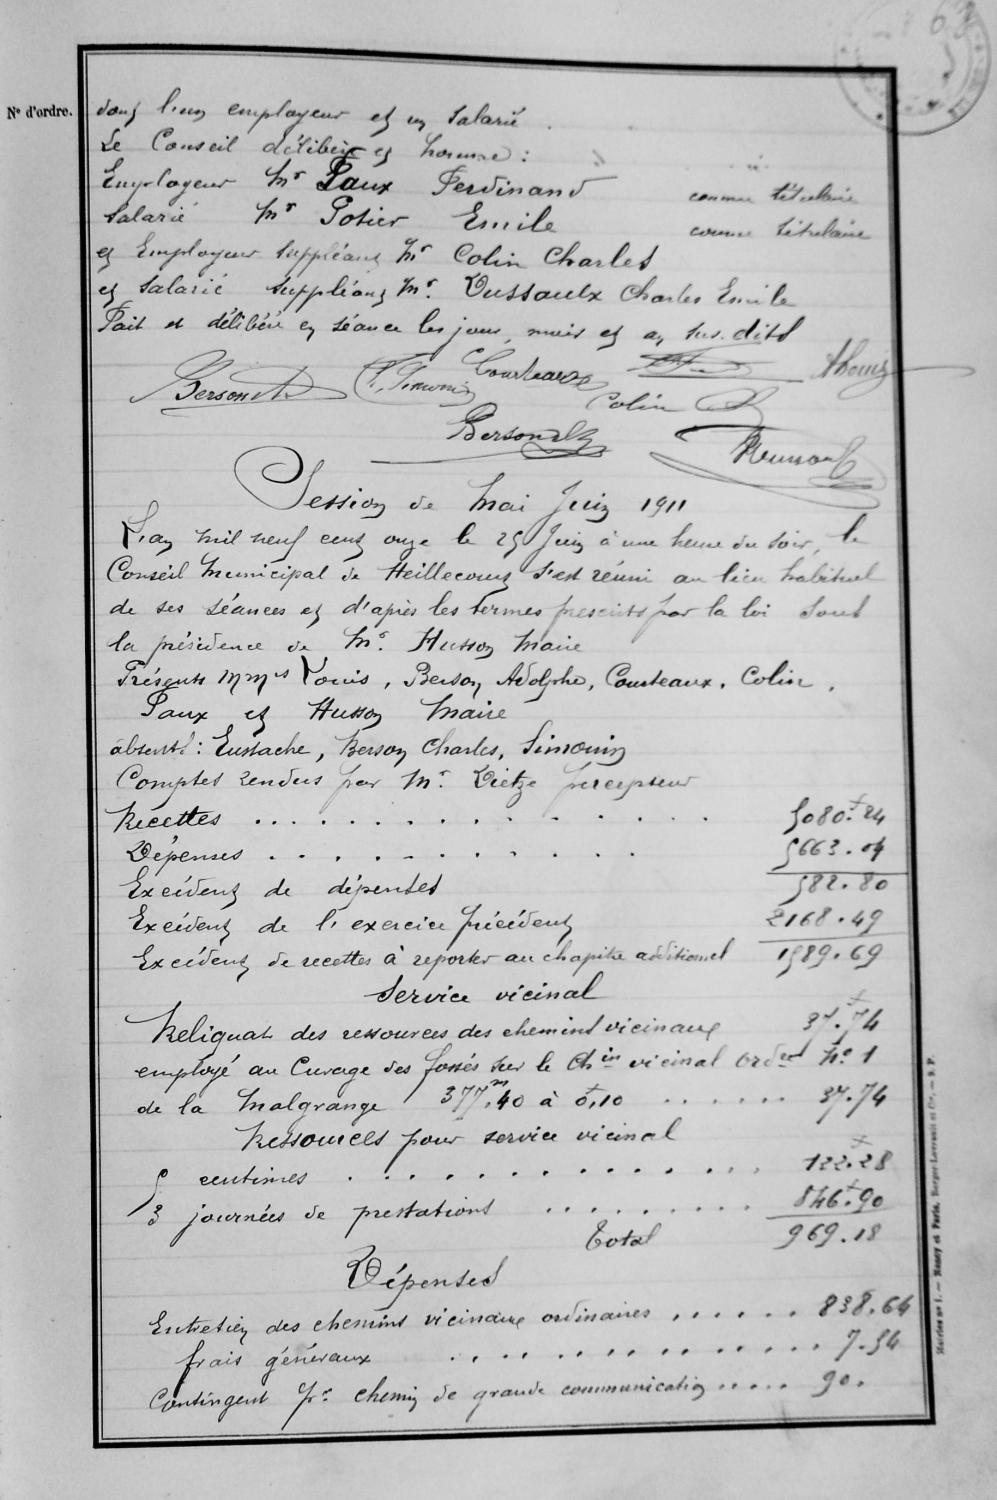 N° d'ordre.
dont l'un employeur et un salarié
Le Conseil délibère et nomme :
Employeur Mr Paux Ferdinand comme titulaire
Salarié Mr Potier Emile comme titulaire
et Employeur suppléant Mr Colin Charles
et salarié suppléant Mr. Dussaulx Charles Emile
Fait et délibéré en séance les jour, mois et an sus-dits
Berson P. Simonin Courteaux ALouis
Colin
Berson Husson
Session de Mai Juin 1911
L'an mil neuf cent onze le 25 Juin à une heure du soir, le
Conseil Municipal de Heillecourt s'est réuni au lieu habituel
de ses séances et d'après les termes prescrits par la loi sous
la présidence de Mr. Husson Maire
Présents Mms Louis, Berson Adolphe, Courteaux, Colin,
Paux et Husson Maire
absents : Eustache, Berson Charles, Simonin
Comptes rendus par Mr. Dietze percepteur
Recettes . . . . . . . . . . . . . . . 5080f.24
Dépenses . . . . . . . . . . . . 5663.04
Excédent de dépenses 582.80
Excédent de l'exercice précédent 2168.49
Excédent de recettes à reporter au chapitre additionnel 1589.69
Service vicinal
Reliquat des ressources des chemins vicinaux 37f.74
employé au Curage des fossés sur le Chin vicinal ordre No 1
de la Malgrange 377m.40 à 0f,10 . . . . . . 37.74
Ressources pour service vicinal
5 centimes . . . . . . . . . . . . . . 122f.28
3 journées de prestations . . . . . . . . . 846f.90
Total 969.18
Dépenses
Entretien des chemins vicinaux ordinaires . . . . . . 838.64
frais généraux . . . . . . . . . . . . . . . 7.54
Contingent pr. chemin de grande communication . . . . . 90.
Mairies n° 1. — Nancy et Paris, Berger-Levrault et Cie. — S. P.